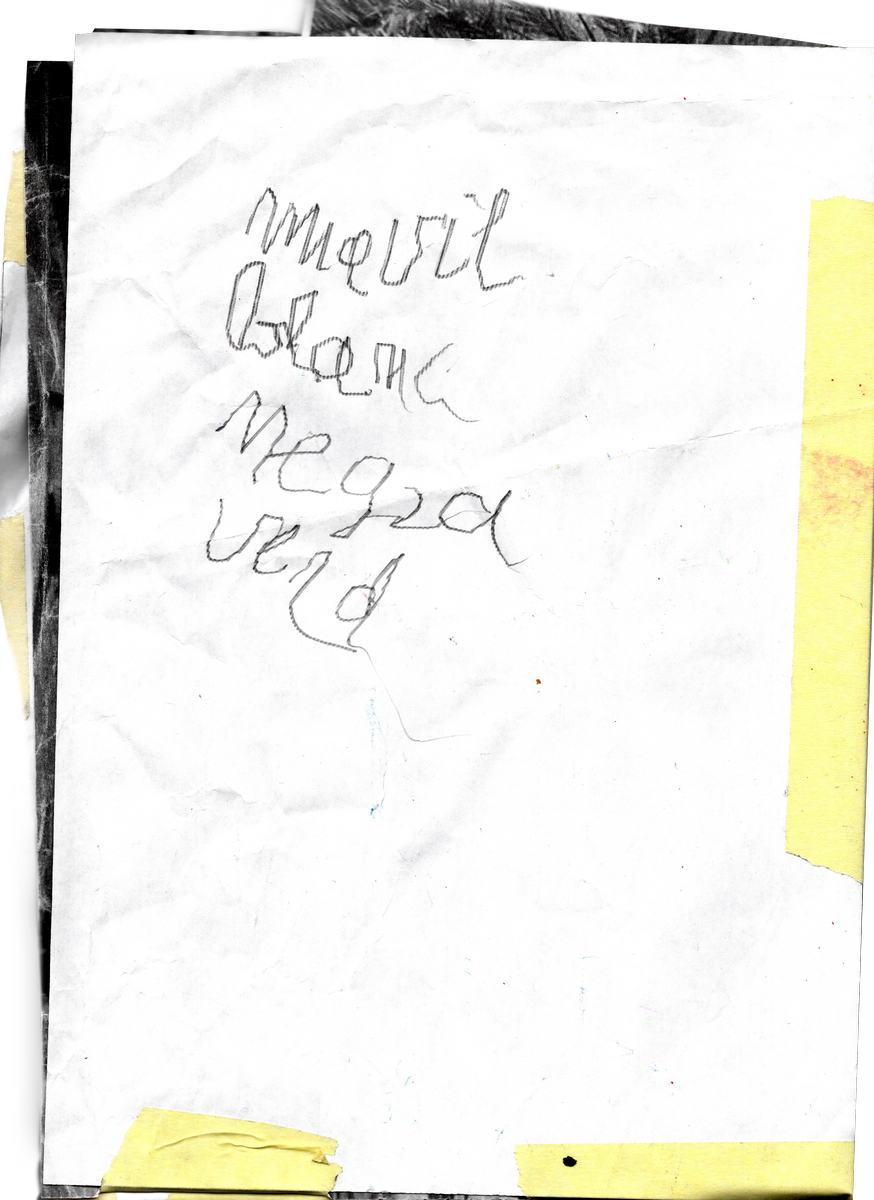 movil
blanc
negra
verd